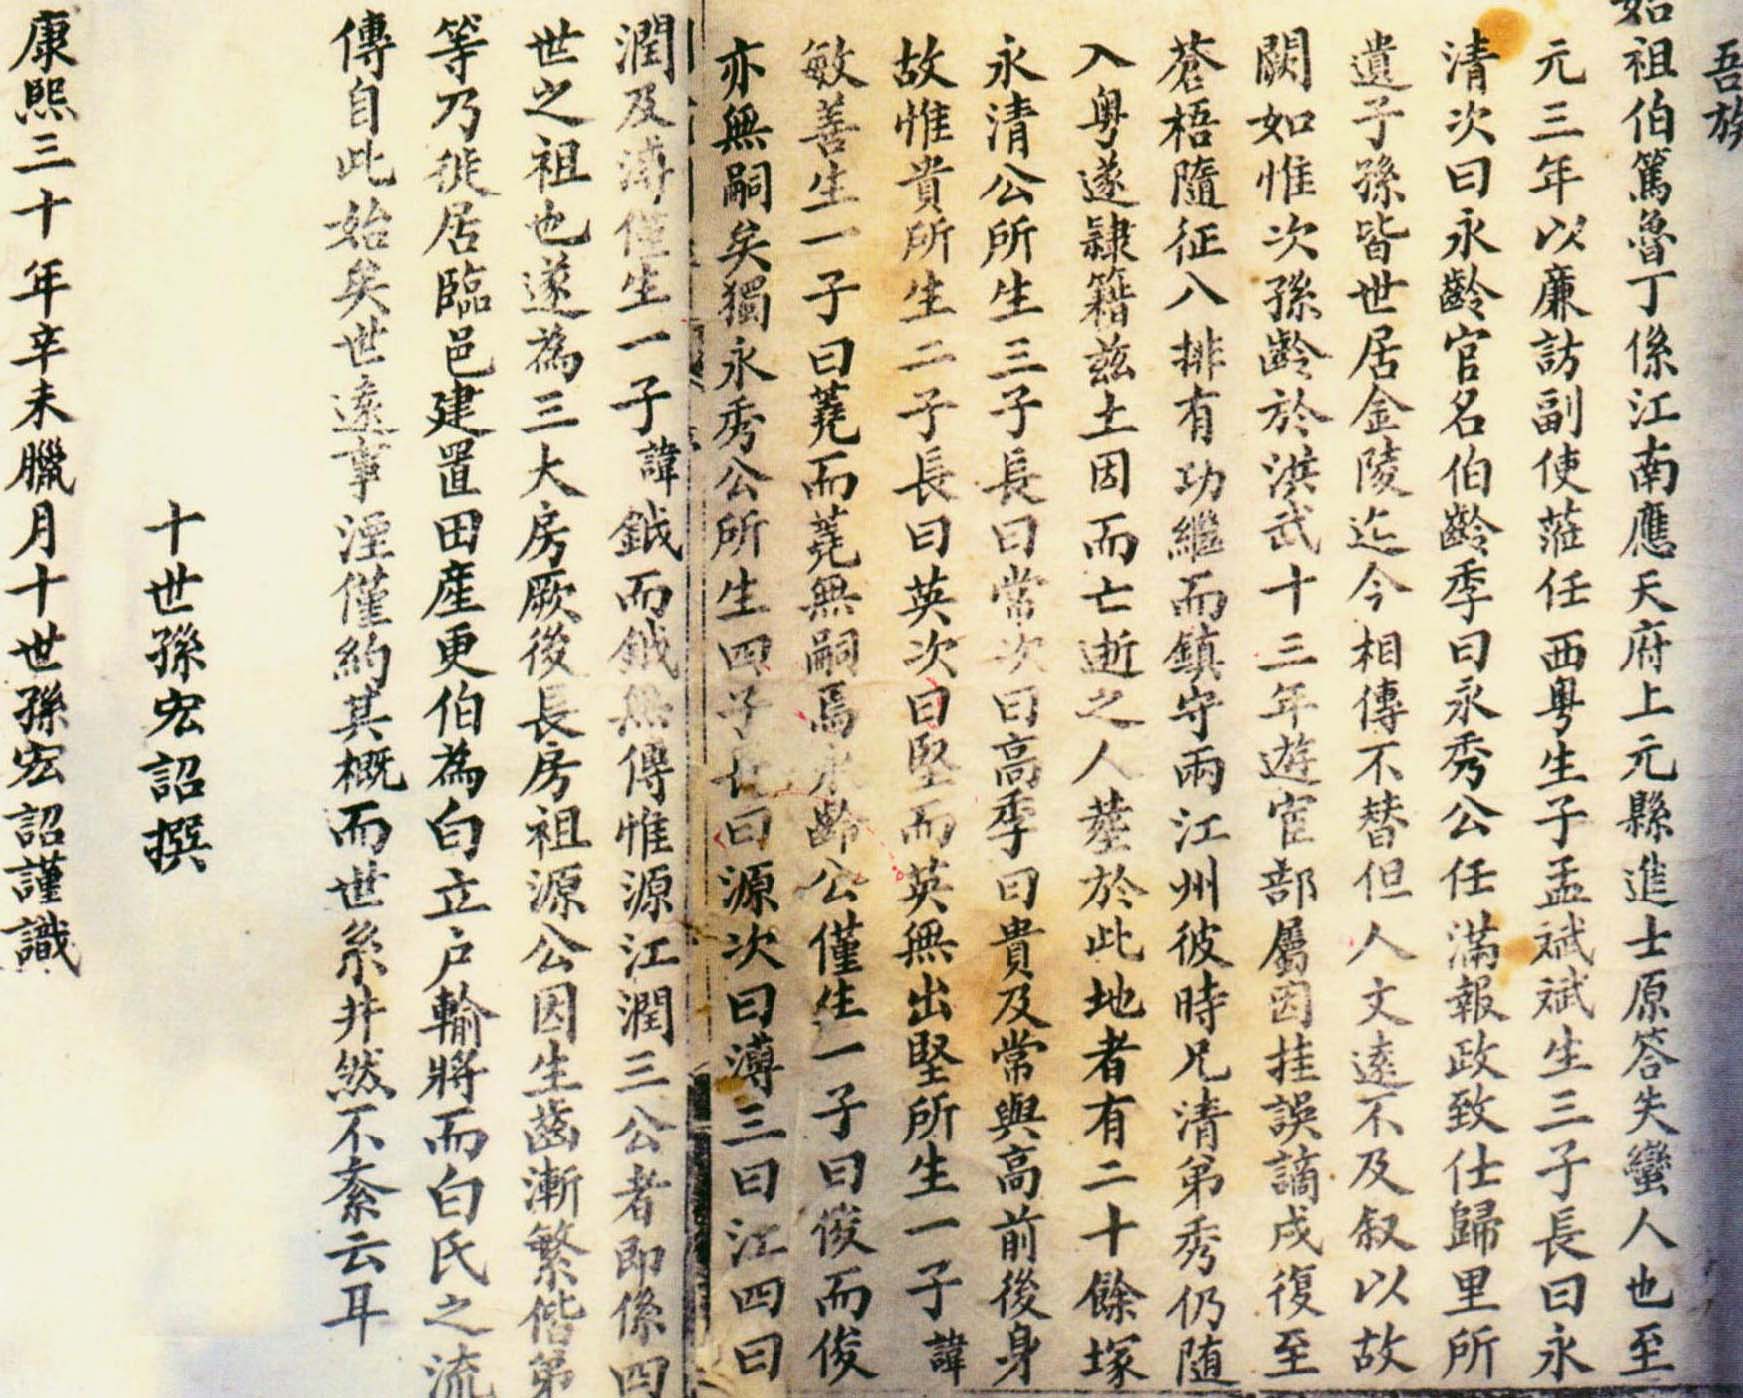 吾族
始祖伯篤魯丁係江南應天府上元縣進士原答失蠻人也至
元三年以廉訪副使蒞任西粤生子孟斌斌生三子長曰永
清次曰永齡官名伯齡季曰永秀公任滿報政致仕歸里所
遺子孫皆世居金陵迄今相傳不替但人文遠不及叙以故
闕如惟次孫齡於洪武十三年遊宦部屬因挂誤謫戍復至
蒼梧隨征八排有功繼而鎮守兩江州彼時兄清第秀仍随
入粤遂隷籍兹土因而亡逝之人塟於此地者有二十餘塚
永清公所生三子長曰常次曰高季曰貴及常與高前後身
故惟貴所生二子長曰英次曰堅而英無出堅所生一子諱
敏善生一子曰蕘而蕘無嗣焉永齡公僅生一子曰俊而俊
亦無嗣矣獨永秀公所生四子長曰源次曰溥三曰江四曰
潤及溥僅生一子諱鉞而鉞無傳惟源江潤三公者即係四
世之祖也遂為三大房厥後長房祖源公因生齒漸繁偕第
等乃徙居臨邑建置田產更伯為白立户輸將而白氏之流
傳自此始矣世遠事湮僅約其概而世系井然不紊云耳
十世孫宏詔撰
康熙三十年辛未臘月十世孫宏詔謹識